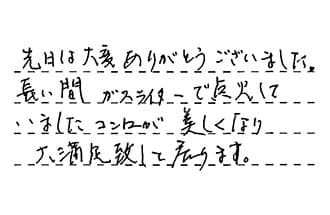 先日は大変ありがとうございました。
長い間 ガスライターで点火して
いましたコンローが 美しくなり
大満足致して居ります。